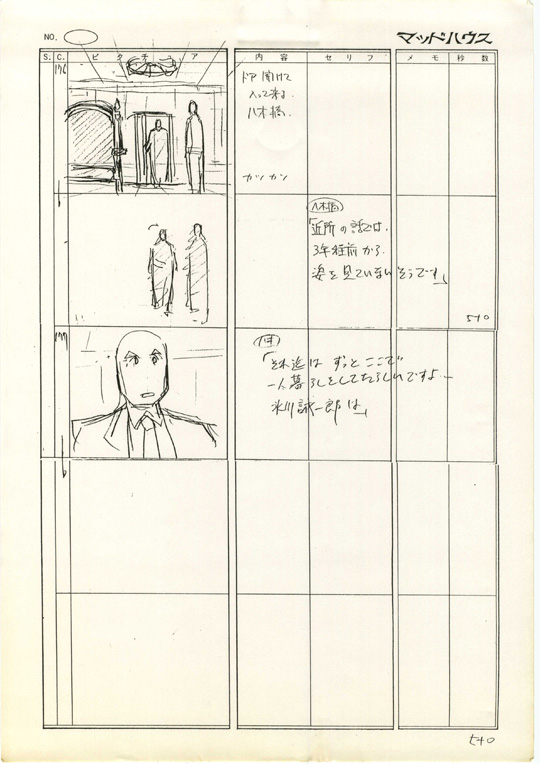 NO.
マッドハウス
S. C. ピクチュア 内容 セリフ メモ 秒数
176
ドア開けて
入って来る
八木橋.
カツ カン
八木橋
「近所の話では.
3年程前から
姿を見ていないそうです」
5+0
177
「それ迄はずっとここで
一人暮らしをしてたらしいですよ…
氷川誠一郎は」
5+0